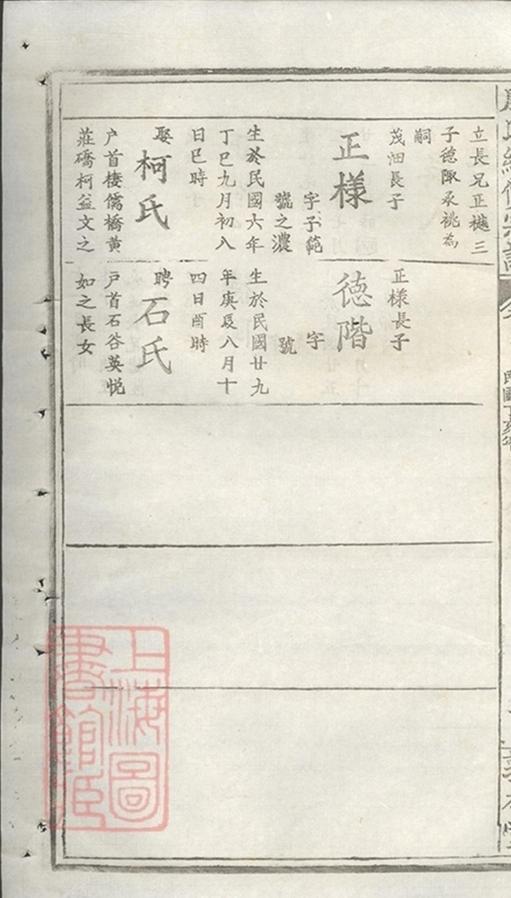 立長兄正樾三
子德陬承祧為
嗣
茂沺長子
正樣
字子範
號之濃
生於民國六年
丁巳九月初八
日巳時
娶柯氏
户首棲儒橋黃
莊礄柯益文之
正樣長子
德階
字
號
生於民國廿九
年庚辰八月十
四日酉時
聘石氏
户首石峇英悦
如之長女
上海圖
書館藏